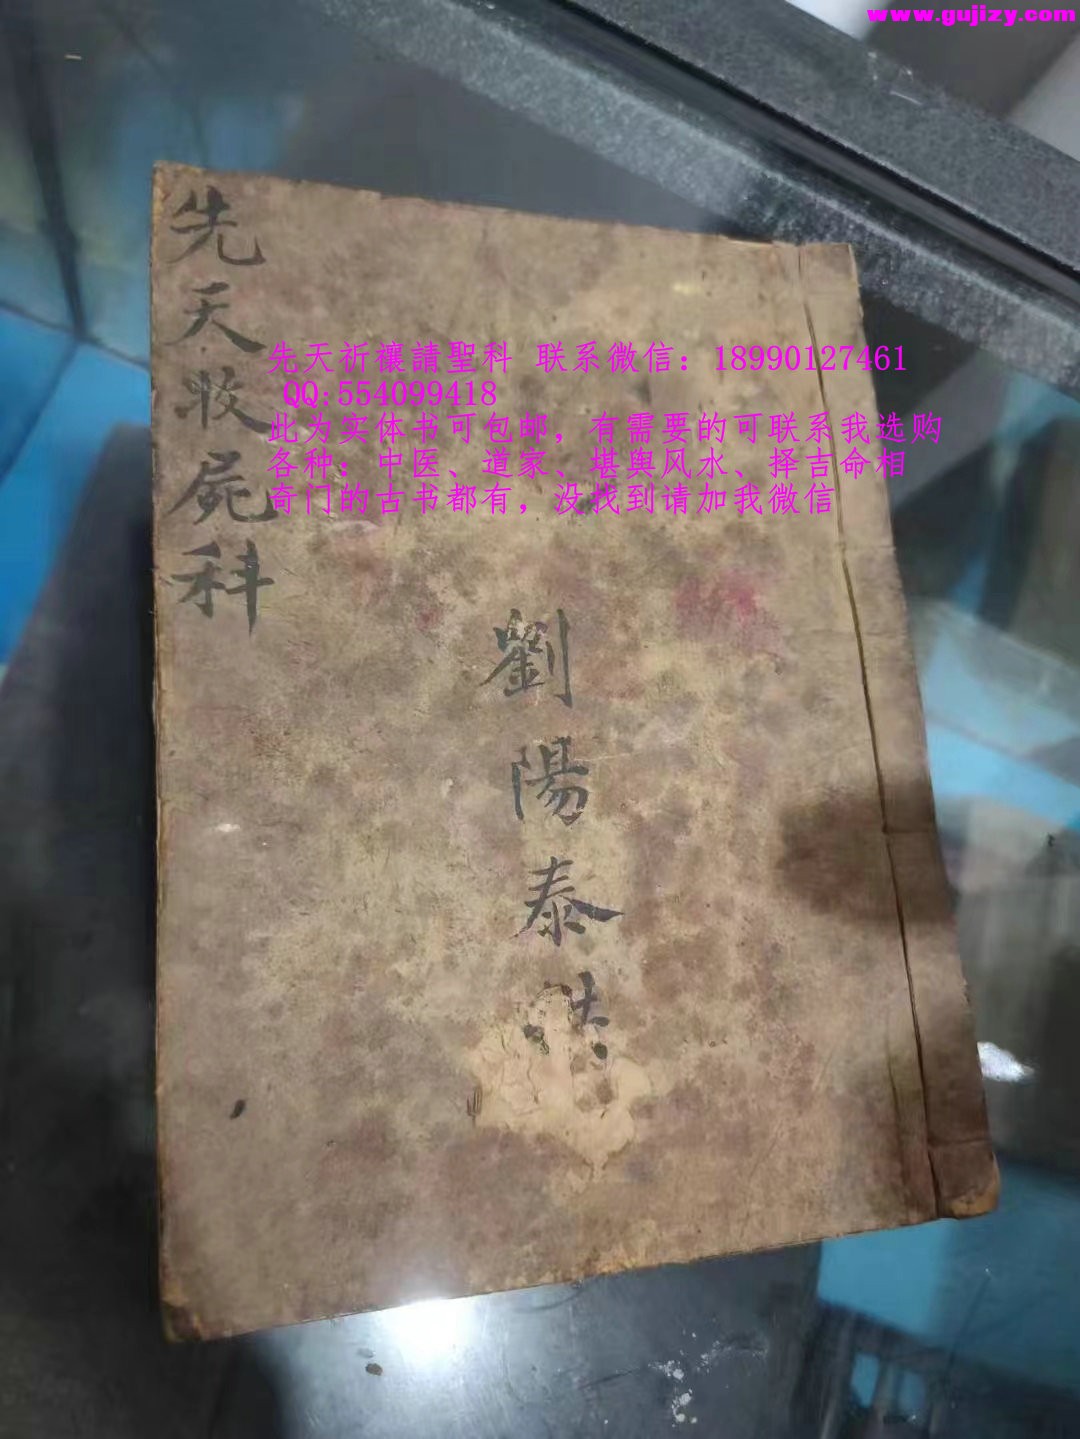 www.gujizy.com
先天收屍科
先天祈禳請聖科 联系微信：18990127461
QQ:554099418
此为实体书可包邮，有需要的可联系我选购
各种：中医、道家、堪舆风水、择吉命相
奇门的古书都有，没找到请加我微信
劉陽泰